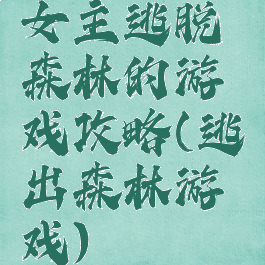 女主逃脱
森林的游
戏攻略(逃
出森林游
戏)